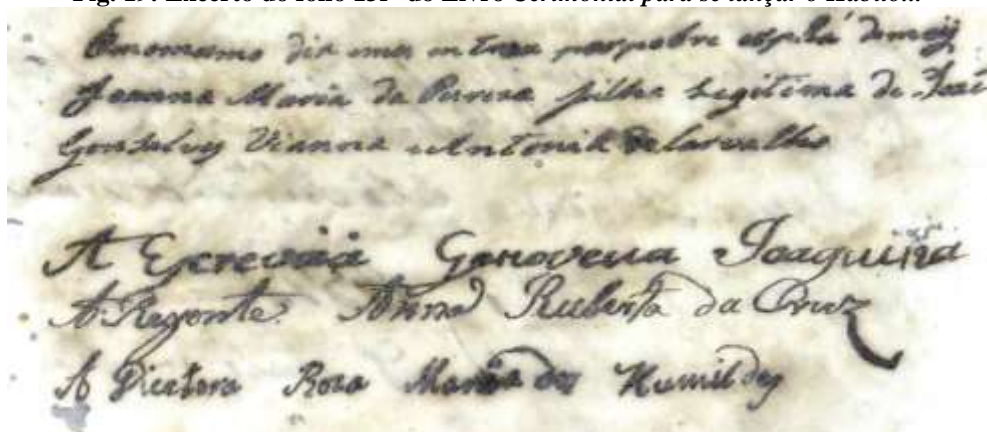 Fig. 19: Excerto do fólio 131 do Livro Cerimonial para se lançar o Hábito...
dia entrou por pobre
Joanna Maria da Pureza filha Legitima de José
Gonsalvez Vianna e Antonia de Carvalho
A Escrevaia Genoveua Joaquina
A Regonte Anna Ruberta da Cruz
A Diretora Rosa Maria dos Humildes